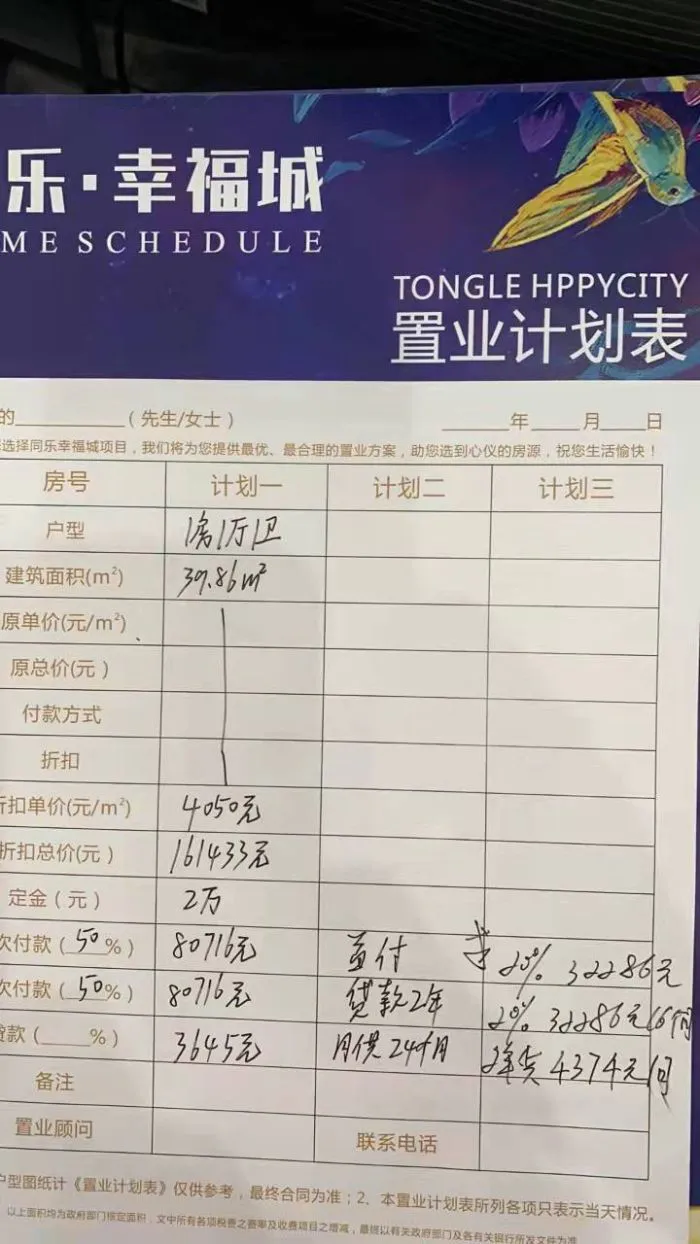 乐·幸福城
ME SCHEDULE
TONGLE HPPYCITY
置业计划表
的 (先生/女士) 年 月 日
选择同乐幸福城项目，我们将为您提供最优、最合理的置业方案，助您选到心仪的房源，祝您生活愉快！
房号 计划一 计划二 计划三
户型 1房1厅1卫
建筑面积(m²) 39.86m²
原单价(元/m²)
原总价(元)
付款方式
折扣
折扣单价(元/m²) 4050元
折扣总价(元) 161433元
定金(元) 2万
次付款(50%) 80716元 首付 20% 32286元
次付款(50%) 80716元 贷款2年 20% 32286元(6个月
贷款( %) 3645元 月供24个月 2年货 4374元/月
备注
置业顾问 联系电话
户型图纸计《置业计划表》仅供参考，最终合同为准；2、本置业计划表所列各项只表示当天情况。
以上面积均为政府部门核定面积，文中所有各项税费之赛率及收费项目之增减，最终以有关政府部门及各有关银行所发文件为准